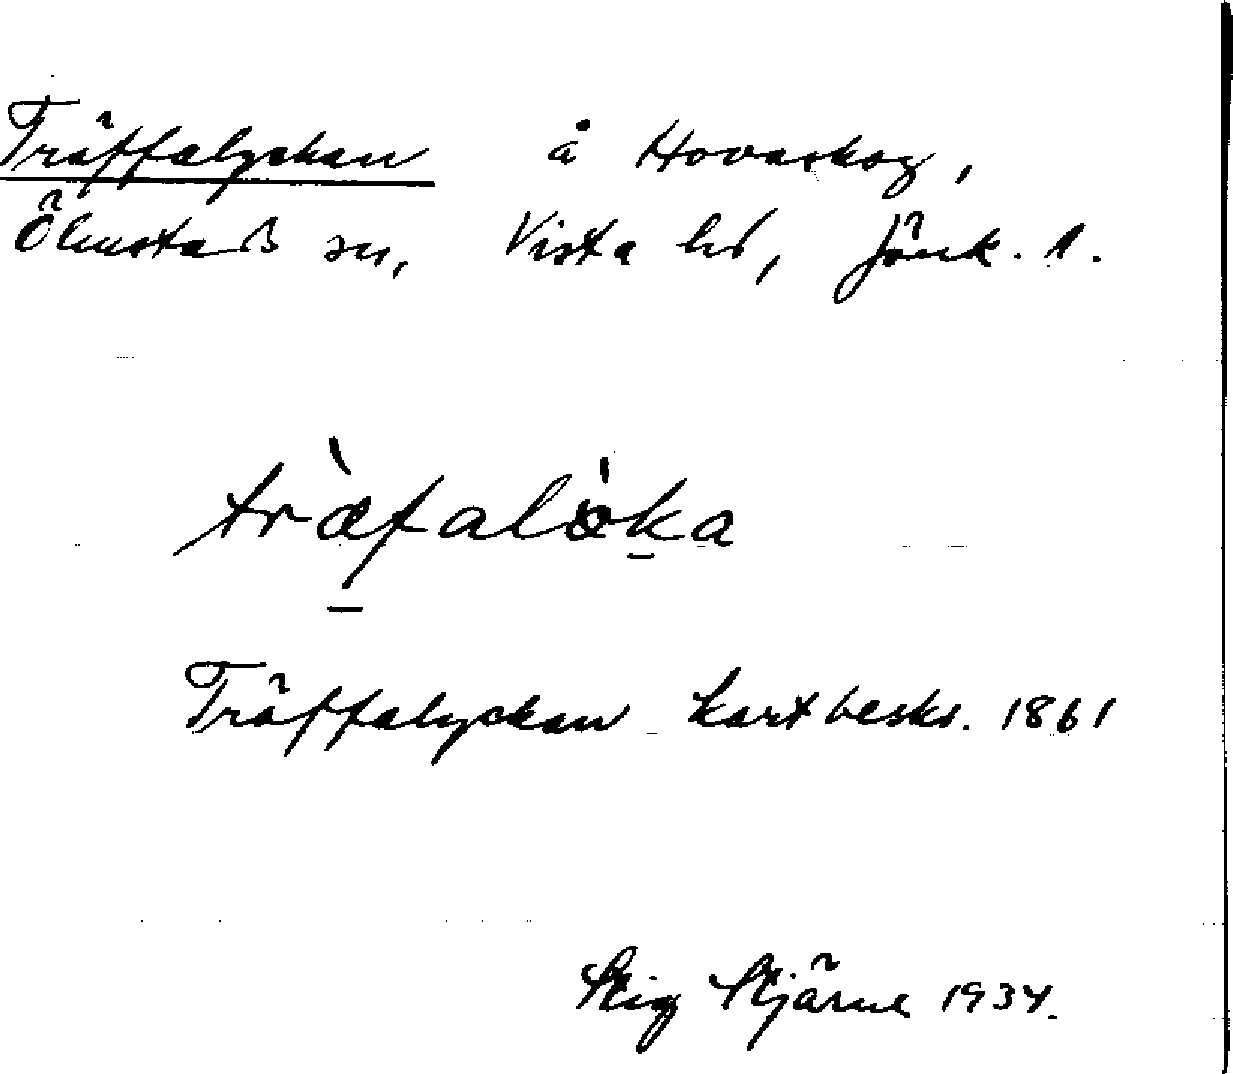 Träffalyckan å Hovaskog,
Ölmstads sn, Vista hd, Jönk. l.
træfaløka
Träffalyckan kartbeskr. 1861
Stig Stjärne 1934.